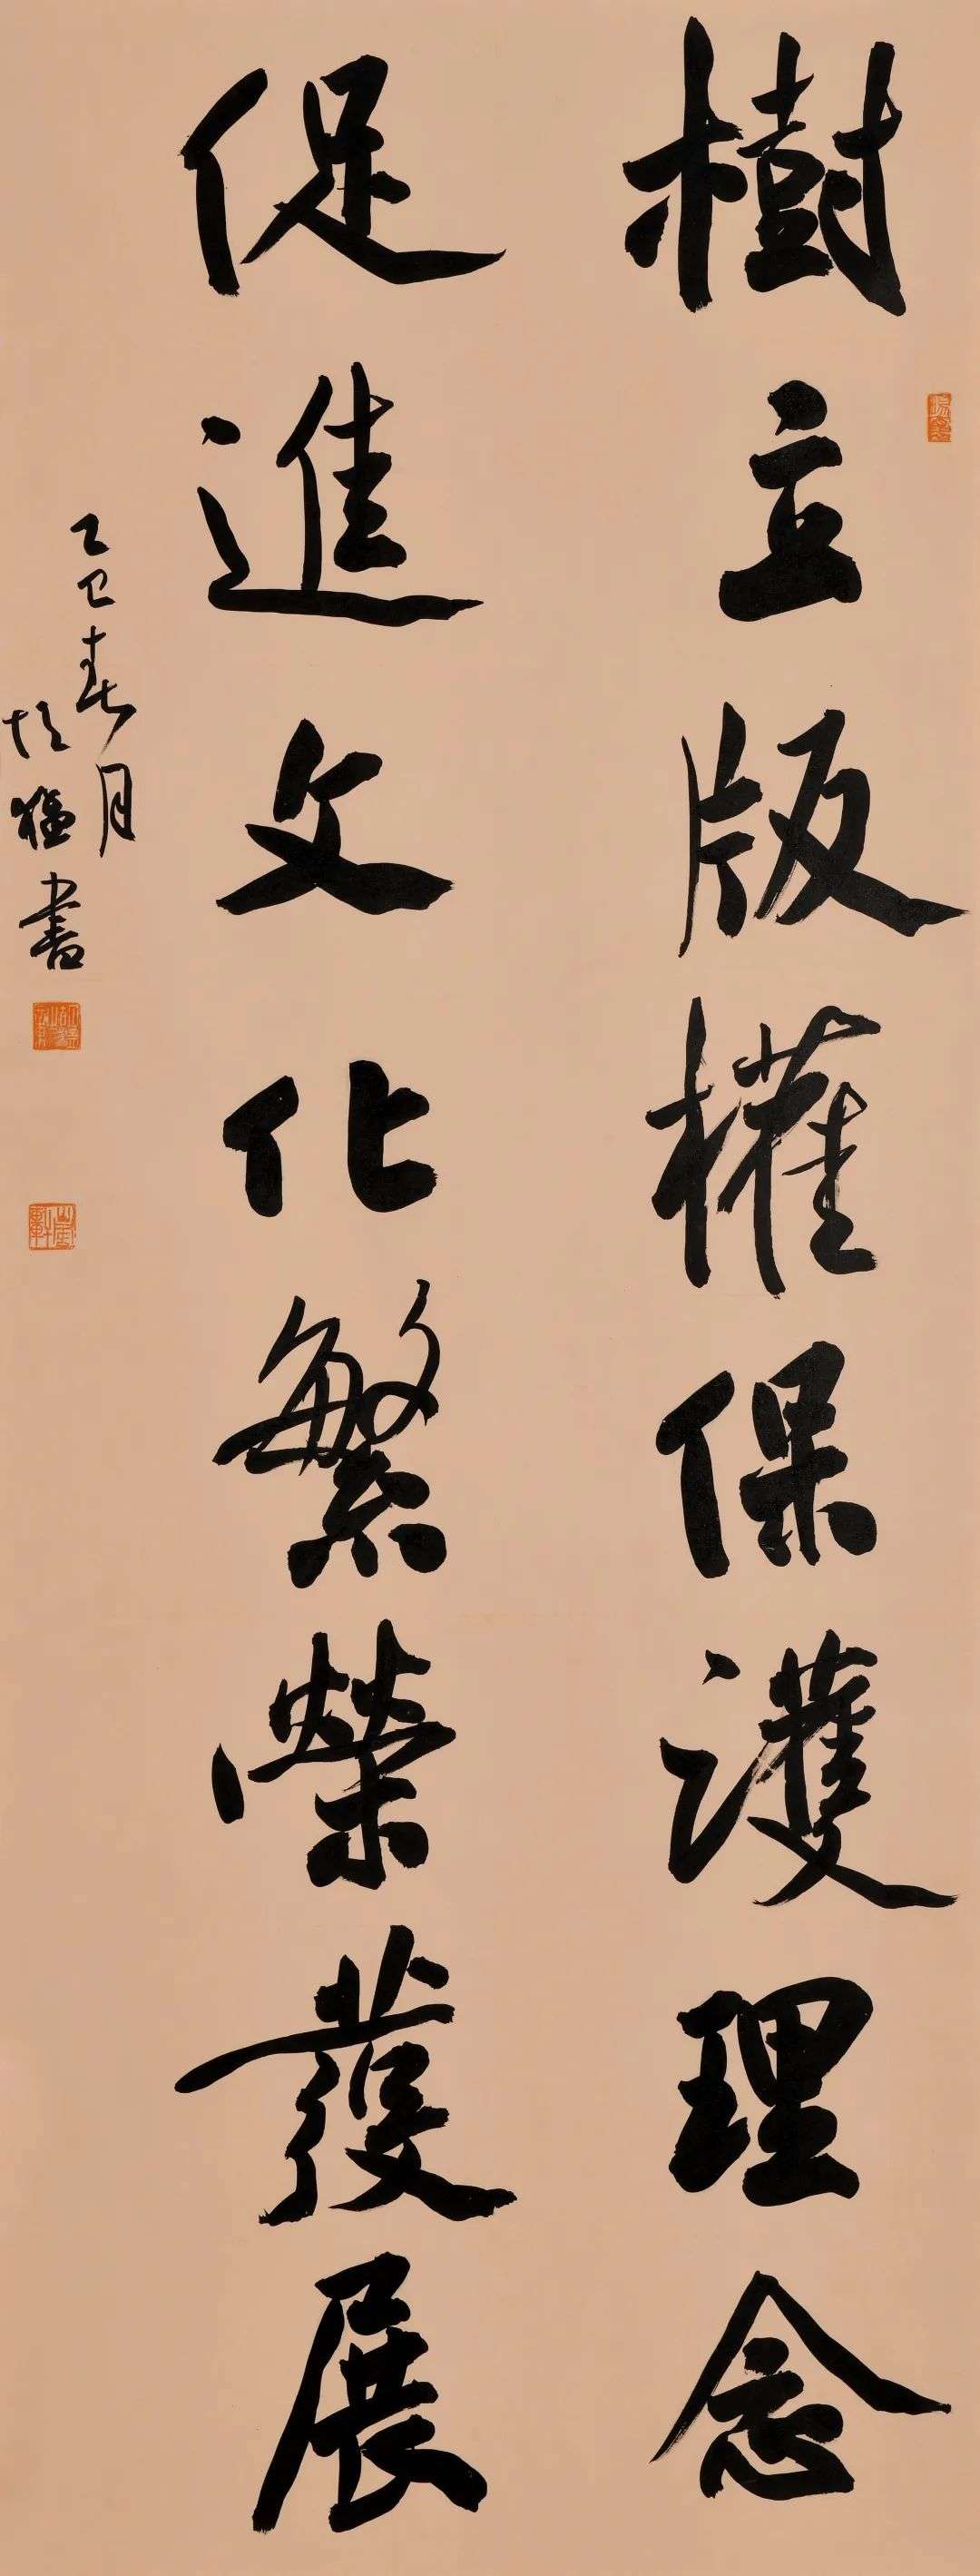 樹立版權保護理念
促進文化繁榮發展
乙巳春月
書